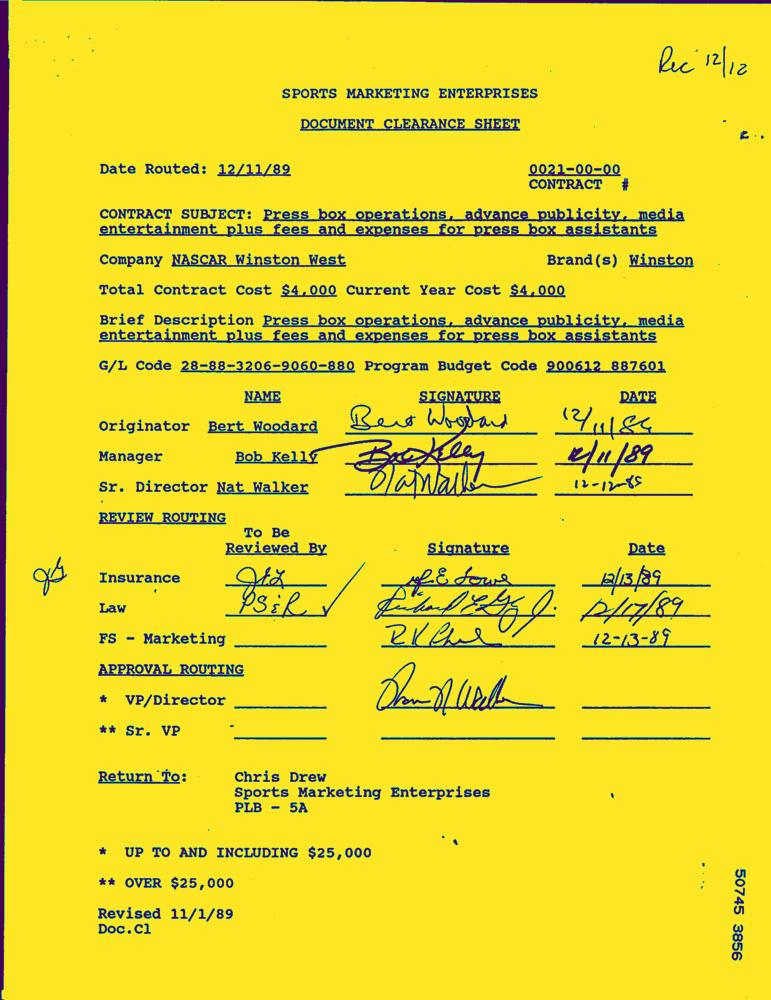 Rec 12/12
SPORTS MARKETING ENTERPRISES
DOCUMENT CLEARANCE SHEET
Date Routed: 12/11/89
0021-00-00
CONTRACT #
CONTRACT SUBJECT: Press box operations, advance publicity, media
entertainment plus fees and expenses for press box assistants
Company NASCAR Winston West Brand(s) Winston
Total Contract Cost $4,000 Current Year Cost $4,000
Brief Description Press box operations, advance publicity, media
entertainment plus fees and expenses for press box assistants
G/L Code 28-88-3206-9060-880 Program Budget Code 900612 887601
NAME SIGNATURE DATE
Originator Bert Woodard Bert Woodard 12/11/89
Manager Bob Kelly Bob Kelly 12/11/89
Sr. Director Nat Walker Nat Walker 12-12-89
REVIEW ROUTING
To Be
Reviewed By Signature Date
Insurance 12/13/89
Law PSER 12/17/89
FS - Marketing 12-13-89
APPROVAL ROUTING
* VP/Director
** Sr. VP
Return To: Chris Drew
Sports Marketing Enterprises
PLB - 5A
* UP TO AND INCLUDING $25,000
** OVER $25,000
Revised 11/1/89
Doc.Cl
50745 3856